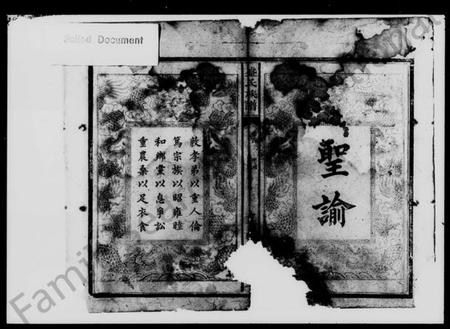 Soiled Document
聖諭
敦孝弟以重人倫
篤宗族以昭雍睦
和鄉黨以息爭訟
重農桑以足衣食